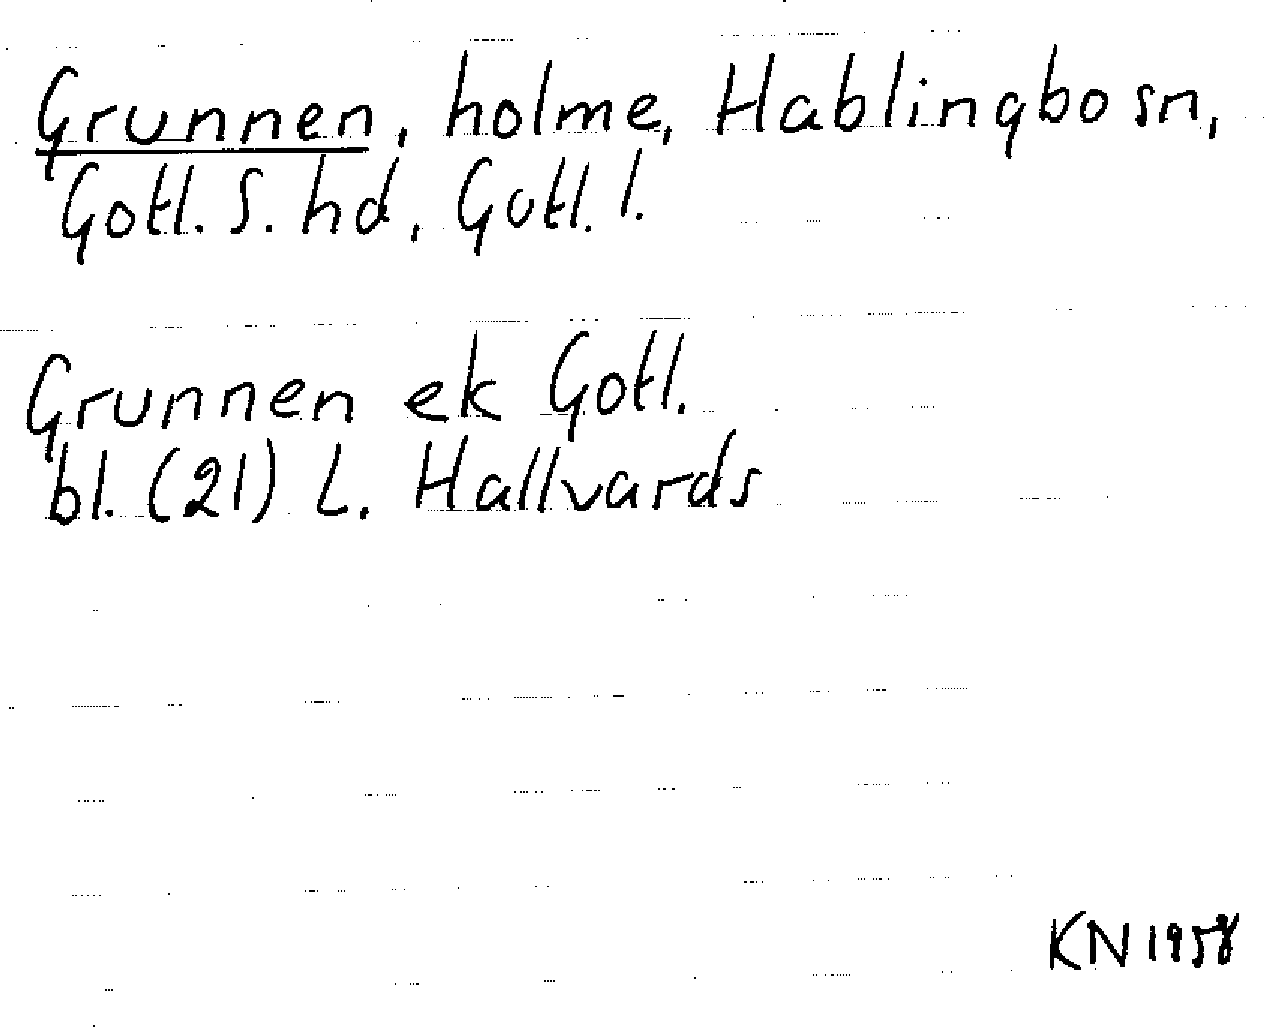 Grunnen, holme, Hablingbo sn,
Gotl. S. hd, Gotl. l.
Grunnen ek Gotl.
bl. (21) L. Hallvards
KN 1958